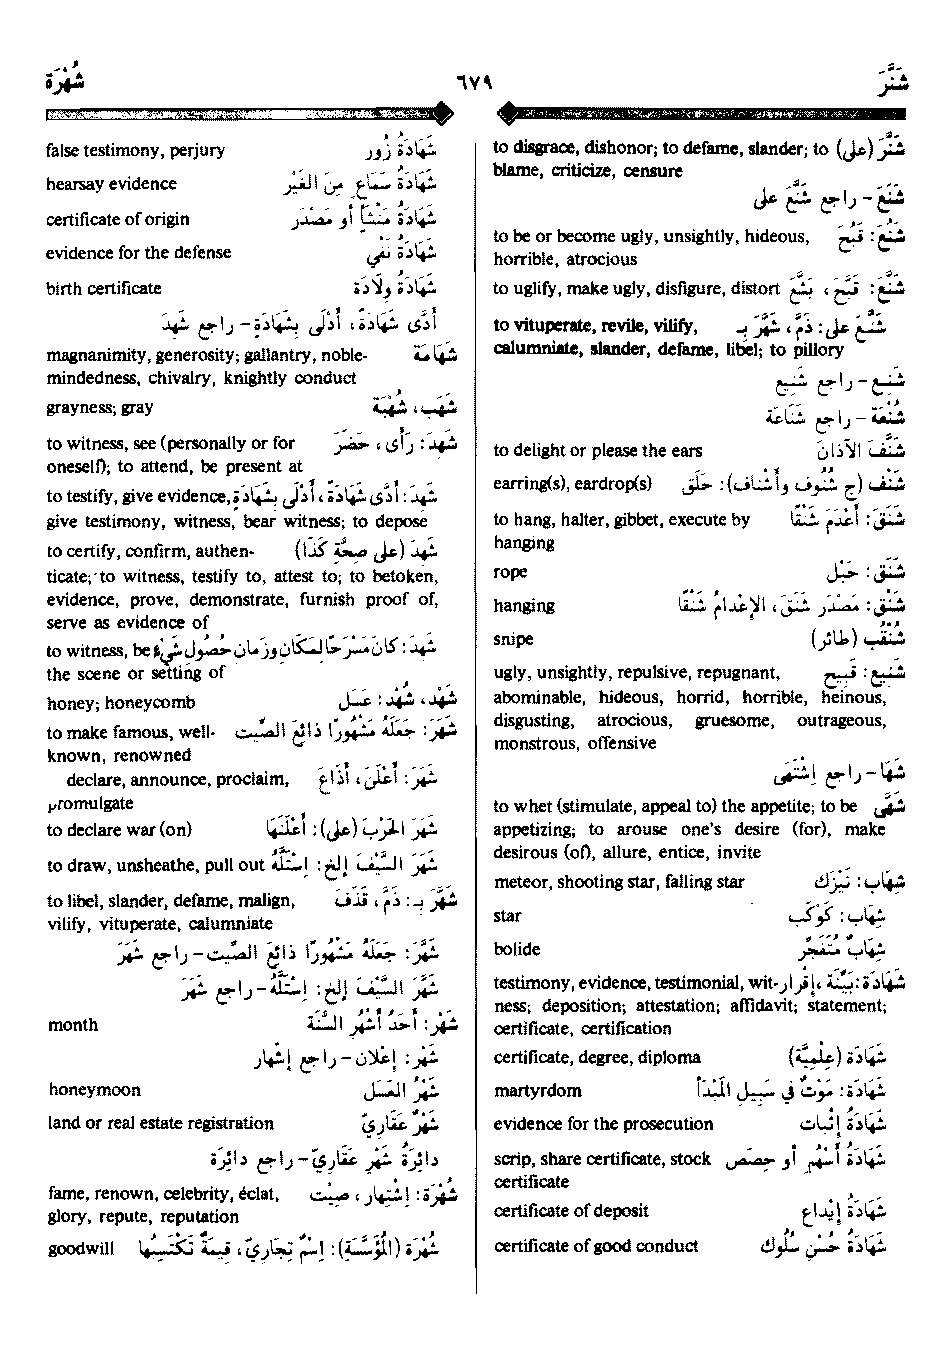 شَنَّرَ ٦٧٩ شُهْرَة
شَنَّرَ (على) to disgrace, dishonor; to defame, slander; to
blame, criticize, censure
شَنَعَ - راجع شَنَّعَ على
شَنُعَ: قَبُحَ to be or become ugly, unsightly, hideous,
horrible, atrocious
شَنَّعَ: قَبَّحَ، بَشَّعَ to uglify, make ugly, disfigure, distort
شَنَّعَ على: ذَمَّ، شَهَّرَ بِـ to vituperate, revile, vilify,
calumniate, slander, defame, libel; to pillory
شَنِع - راجع شَنِيع
شُنْعَة - راجع شَنَاعَة
شَنَّفَ الآذانَ to delight or please the ears
شَنْف (ج شُنُوف وأَشْنَاف): حَلَق earring(s), eardrop(s)
شَنَقَ: أَعْدَمَ شَنْقًا to hang, halter, gibbet, execute by
hanging
شَنَق: حَبْل rope
شَنْق: مَصْدَر شَنَقَ، الإعْدامُ شَنْقًا hanging
شُنْقُب (طائر) snipe
شَنِيع: قَبِيح ugly, unsightly, repulsive, repugnant,
abominable, hideous, horrid, horrible, heinous,
disgusting, atrocious, gruesome, outrageous,
monstrous, offensive
شَهَا - راجع إشْتَهَى
شَهَّى to whet (stimulate, appeal to) the appetite; to be
appetizing; to arouse one's desire (for), make
desirous (of), allure, entice, invite
شِهَاب: نَيْزَك meteor, shooting star, falling star
شِهَاب: كَوْكَب star
شِهَابٌ مُتَفَجِّر bolide
شَهَادَة: بَيِّنَة، إقْرار testimony, evidence, testimonial, wit-
ness; deposition; attestation; affidavit; statement;
certificate, certification
شَهَادَة (عِلْمِيَّة) certificate, degree, diploma
شَهَادَة: مَوْتٌ في سَبِيلِ المَبْدَأ martyrdom
شَهَادَةُ إثْبَات evidence for the prosecution
شَهَادَةُ أَسْهُم أو حِصَص scrip, share certificate, stock
certificate
شَهَادَةُ إيْدَاع certificate of deposit
شَهَادَةُ حُسْنِ سُلُوك certificate of good conduct
شَهَادَةُ زُور false testimony, perjury
شَهَادَةُ سَمَاعٍ مِنَ الغَيْر hearsay evidence
شَهَادَةُ مَنْشَإٍ أو مَصْدَر certificate of origin
شَهَادَةُ نَفْي evidence for the defense
شَهَادَةُ وِلَادَة birth certificate
أَدَّى شَهَادَةً، أَدْلَى بِشَهَادَةٍ - راجع شَهِدَ
شَهَامَة magnanimity, generosity; gallantry, noble-
mindedness, chivalry, knightly conduct
شَهَب، شُهْبَة grayness; gray
شَهِدَ: رَأَى، حَضَرَ to witness, see (personally or for
oneself); to attend, be present at
شَهِدَ: أَدَّى شَهَادَةً، أَدْلَى بِشَهَادَةٍ to testify, give evidence,
give testimony, witness, bear witness; to depose
شَهِدَ (على صِحَّةِ كَذَا) to certify, confirm, authen-
ticate; to witness, testify to, attest to; to betoken,
evidence, prove, demonstrate, furnish proof of,
serve as evidence of
شَهِدَ: كَانَ مَسْرَحًا لِمَكَانِ وزَمَانِ حُصُولِ شَيْءٍ to witness, be
the scene or setting of
شَهْد، شُهْد: عَسَل honey; honeycomb
شَهَرَ: جَعَلَهُ مَشْهُورًا ذائِعَ الصِّيت to make famous, well-
known, renowned
شَهَرَ: أَعْلَنَ، أَذَاعَ declare, announce, proclaim,
promulgate
شَهَرَ الحَرْبَ (على): أَعْلَنَهَا to declare war (on)
شَهَرَ السَّيْفَ إلخ: إسْتَلَّهُ to draw, unsheathe, pull out
شَهَّرَ بِـ: ذَمَّ، قَذَفَ to libel, slander, defame, malign,
vilify, vituperate, calumniate
شَهَّرَ: جَعَلَهُ مَشْهُورًا ذائِعَ الصِّيت - راجع شَهَرَ
شَهَّرَ السَّيْفَ إلخ: إسْتَلَّهُ - راجع شَهَرَ
شَهْر: أَحَدُ أَشْهُرِ السَّنَة month
شَهْر: إعْلان - راجع إشْهار
شَهْرُ العَسَل honeymoon
شَهْرٌ عَقَارِيّ land or real estate registration
دائِرَةُ شَهْرٍ عَقَارِيّ - راجع دائِرَة
شُهْرَة: إشْتِهار، صِيْت fame, renown, celebrity, éclat,
glory, repute, reputation
شُهْرَة (المُؤَسَّسَة): إسْمٌ تِجَارِيّ، قِيمَةٌ تَكْتَسِبُهَا goodwill